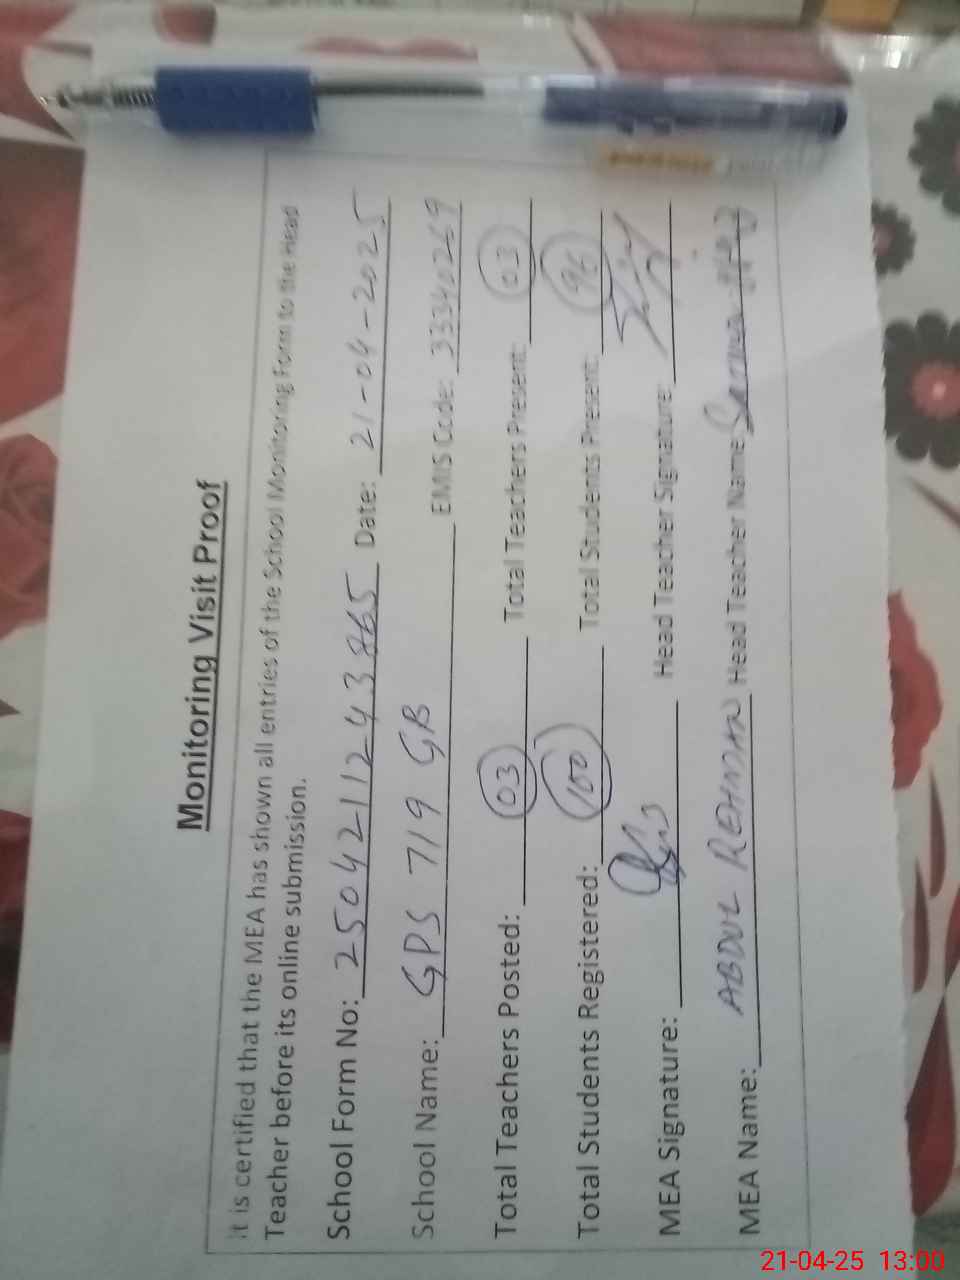 Monitoring Visit Proof
It is certified that the MEA has shown all entries of the School Monitoring Form to the Head
Teacher before its online submission.
School Form No: 2504211243865 Date: 21-04-2025
School Name: GPS 719 GB EMIS Code: 33340269
Total Teachers Posted: 03 Total Teachers Present: 03
Total Students Registered: 100 Total Students Present: 96
MEA Signature: Head Teacher Signature:
MEA Name: ABDUL REHMAN Head Teacher Name:
21-04-25 13:00